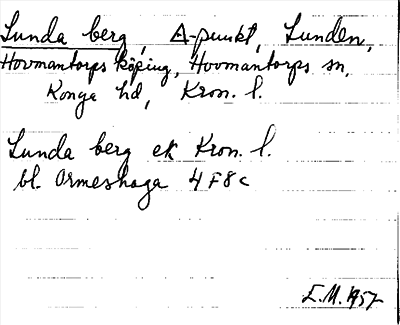 Lunda berg, Δ-punkt, Lunden,
Hovmantorps köping, Hovmantorps sn,
Konga hd, Kron. l.
Lunda berg ek Kron. l.
bl. Ormeshaga 4F8c
L.M. 1957